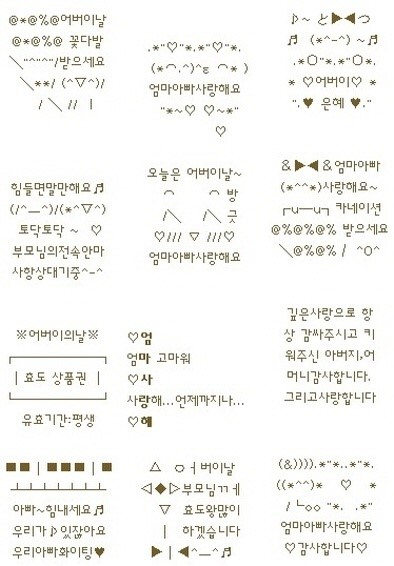 @*@%@어버이날
@*@%@ 꽃다발
＼"^"^"/받으세요
＼**/ (^▽^)/
/ ＼ // |
.*"♡"*.*"♡"*.
(*⌒.^)^ε ⌒* )
엄마아빠사랑해요
"*~♡ ♡~*"
♡
♪~ と▶◀つ
♬ (*^-^) ~♬
.*O"*.*"O*.
* ♡어버이♡ *
".♥ 은혜 ♥."
힘들면말만해요♬
(/^__^)/(*^▽^)
토닥토닥 ~ ♡
부모님의전속안마
사항상대기중^-^
오늘은 어버이날~
⌒ ⌒ 방
/＼ /＼ 긋
♡/// ▽ ///♡
엄마아빠사랑해요
&▶◀&엄마아빠
(*^^*)사랑해요~
┌u─u┐카네이션
@%@%@% 받으세요
＼@%@%/ ^O^
※어버이의날※
┌────────┐
| 효도 상품권 |
└────────┘
유효기간:평생
♡엄
엄마 고마워
♡사
사랑해...언제까지나...
♡혜
깊은사랑으로 항
상 감싸주시고 키
워주신 아버지,어
머니감사합니다.
그리고사랑합니다
■■|■■■|■
┴┴┴┴┴┴
아빠~힘내세요♬
우리가♪있잖아요
우리아빠화이팅♥
△ ㅇㅓ버이날
◁◆▷부모님ㄲㅔ
▽ 효도왕많이
| 하겠습니다
▶|◀^__^♬
(&)))).*"*..*"*.
((*^^)* ♡ *
/└◇◇ "*. .*"
엄마아빠사랑해요
♡감사합니다♡